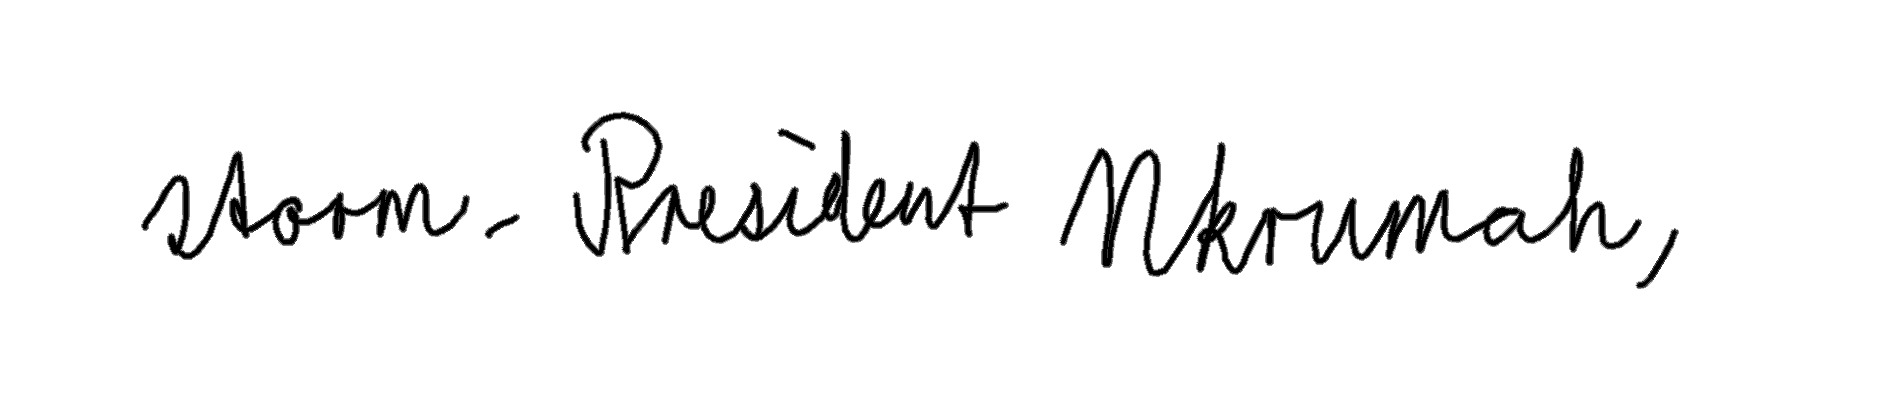 storm - President Nkrumah,